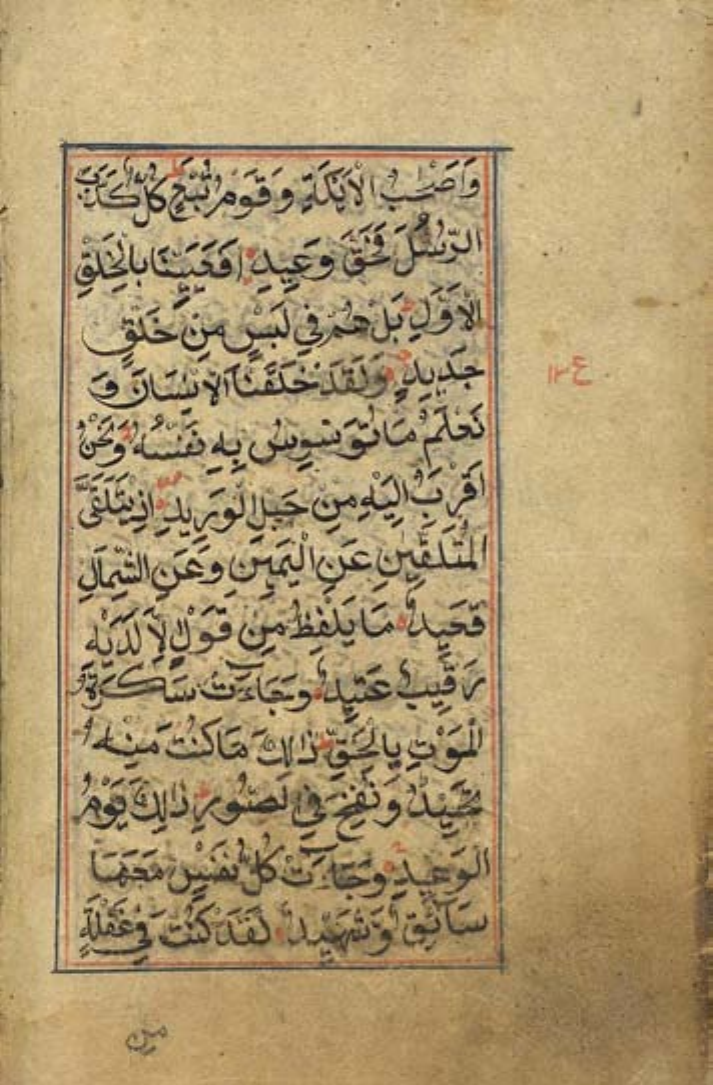 وَاَصْحٰبُ الْاَيْكَةِ وَقَوْمُ تُبَّعٍ ط كُلٌّ كَذَّبَ
الرُّسُلَ فَحَقَّ وَعِيدِ اَفَعَيِينَا بِالْخَلْقِ
الْاَوَّلِ بَلْ هُمْ فِي لَبْسٍ مِنْ خَلْقٍ
جَدِيدٍ وَلَقَدْ خَلَقْنَا الْاِنْسَانَ وَ
نَعْلَمُ مَا تُوَسْوِسُ بِهِ نَفْسُهُ وَنَحْنُ
اَقْرَبُ اِلَيْهِ مِنْ حَبْلِ الْوَرِيدِ اِذْ يَتَلَقَّى
الْمُتَلَقِّيٰنِ عَنِ الْيَمِينِ وَعَنِ الشِّمَالِ
قَعِيدٌ مَا يَلْفِظُ مِنْ قَوْلٍ اِلَّا لَدَيْهِ
رَقِيبٌ عَتِيدٌ وَجَاءَتْ سَكْرَةُ
الْمَوْتِ بِالْحَقِّ ذٰلِكَ مَا كُنْتَ مِنْهُ
تَحِيدُ وَنُفِخَ فِي لصُّورِ ذٰلِكَ يَوْمُ
الْوَعِيدِ وَجَاءَتْ كُلُّ نَفْسٍ مَعَهَا
سَائِقٌ وَشَهِيدٌ لَقَدْ كُنْتَ فِي غَفْلَةٍ
مِنْ